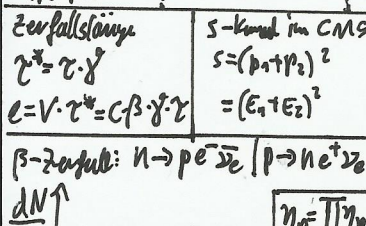 Zerfallslänge
τ* = τ·γ
l = V·τ* = c·β·γ·τ
s- im CMS
s = (p₁+p₂)²
= (E₁+E₂)²
β-Zerfall: n → p e⁻ ν̄ₑ | p → n e⁺ νₑ
dN